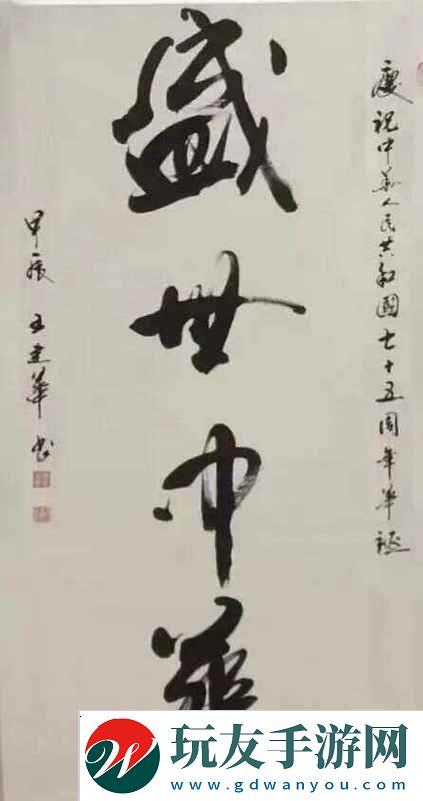 慶祝中華人民共和國七十五周年華誕
盛世中華
甲辰 王建華書
玩友手游网
www.gdwanyou.com